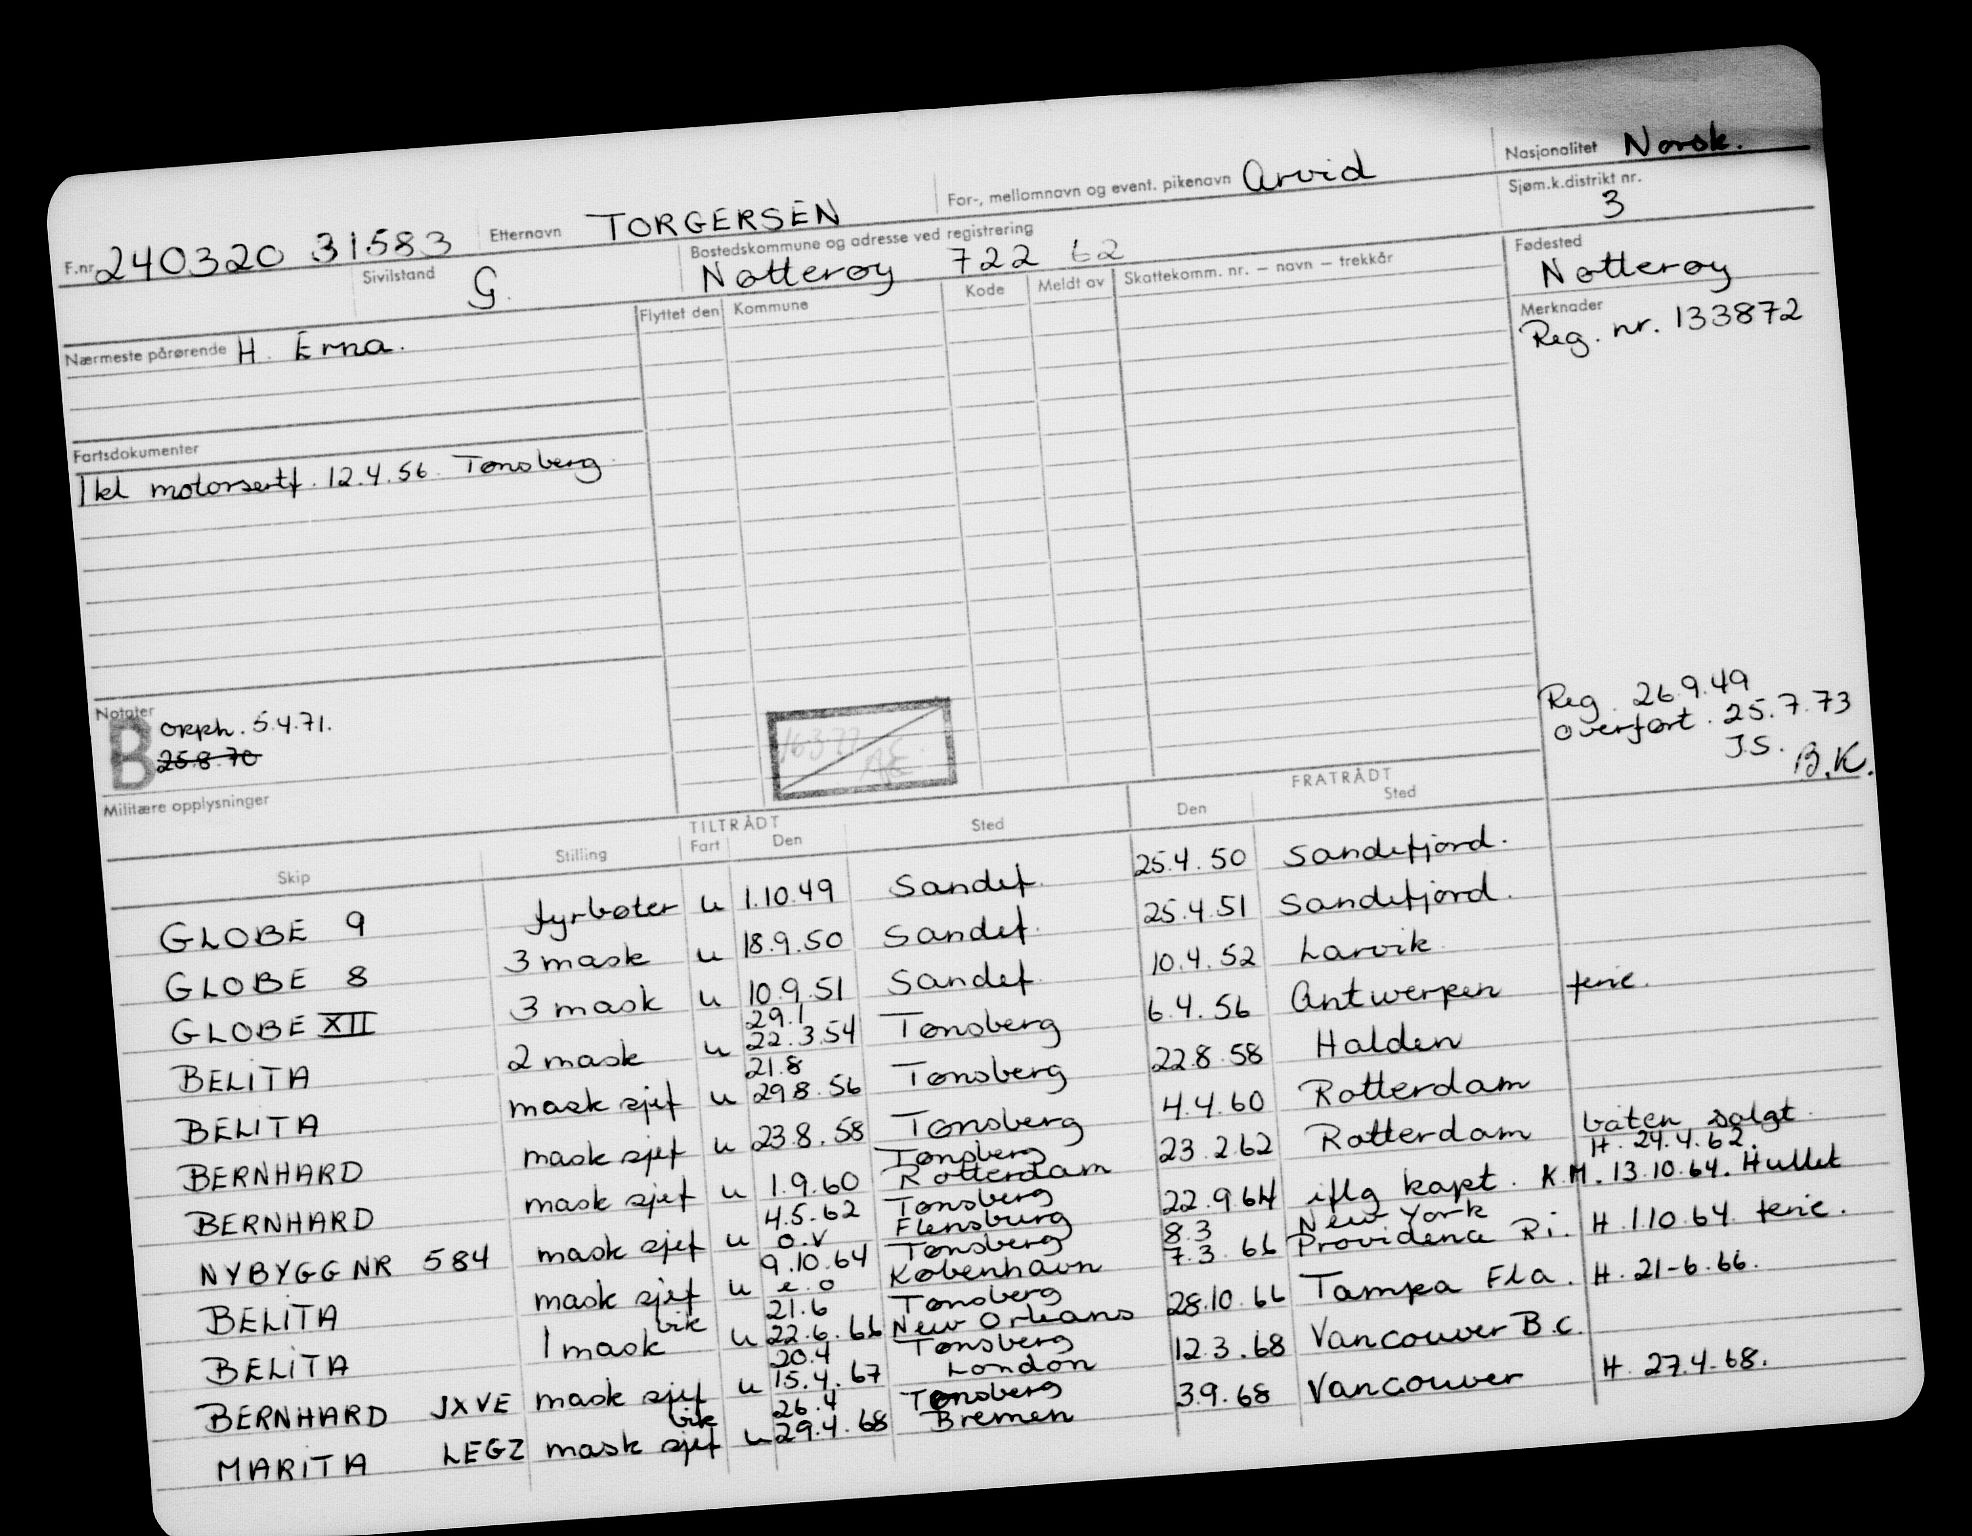 F.nr. 240320 31583 Etternavn TORGERSEN For-, mellomnavn og event. pikenavn Arvid Nasjonalitet Norsk.
Sivilstand G. Bostedskommune og adresse ved registrering Nøtterøy 722 62 Sjøm.k.distrikt nr. 3
Nærmeste pårørende H. Erna. Flyttet den Kommune Kode Meldt av Skattekomm. nr. – navn – trekkår Fødested Nøtterøy
Merknader
Reg. nr. 133872
Fartsdokumenter
1 kl motorsertf. 12.4.56. Tønsberg.
Notater
B opph. 5.4.71.
25.8.70
Reg. 26.9.49
overført. 25.7.73
J.S. B.K.
Militære opplysninger
TILTRÅDT FRATRÅDT
Skip Stilling Fart Den Sted Den Sted
GLOBE 9 fyrbøter u 1.10.49 Sandef. 25.4.50 Sandefjord.
GLOBE 8 3 mask u 18.9.50 Sandef. 25.4.51 Sandefjord.
GLOBE XII 3 mask u 10.9.51 Sandef. 10.4.52 Larvik
29.1
BELITA 2 mask u 22.3.54 Tønsberg 6.4.56 Antwerpen ferie.
21.8
BELITA mask sjef u 29.8.56 Tønsberg 22.8.58 Halden
BERNHARD mask sjef u 23.8.58 Tønsberg 4.4.60 Rotterdam
Tønsberg
BERNHARD mask sjef u 1.9.60 Rotterdam 23.2.62 Rotterdam båten solgt.
4.5.62 Tønsberg H. 24.4.62.
NYBYGG NR 584 mask sjef u o.v Flensburg 22.9.64 iflg kapt. K.M. 13.10.64. Hullet
9.10.64 Tønsberg 8.3 New York
BELITA mask sjef u e.o København 7.3.66 Providence Ri. H. 1.10.64. ferie.
vik 21.6 Tønsberg
BELITA 1 mask u 22.6.66 New Orleans 28.10.66 Tampa Fla. H. 21-6.66.
20.4 Tønsberg
BERNHARD JXVE mask sjef u 15.4.67 London 12.3.68 Vancouver B.c.
vik 26.4 Tønsberg
MARITA LEGZ mask sjef u 29.4.68 Bremen 3.9.68 Vancouver H. 27.4-68.